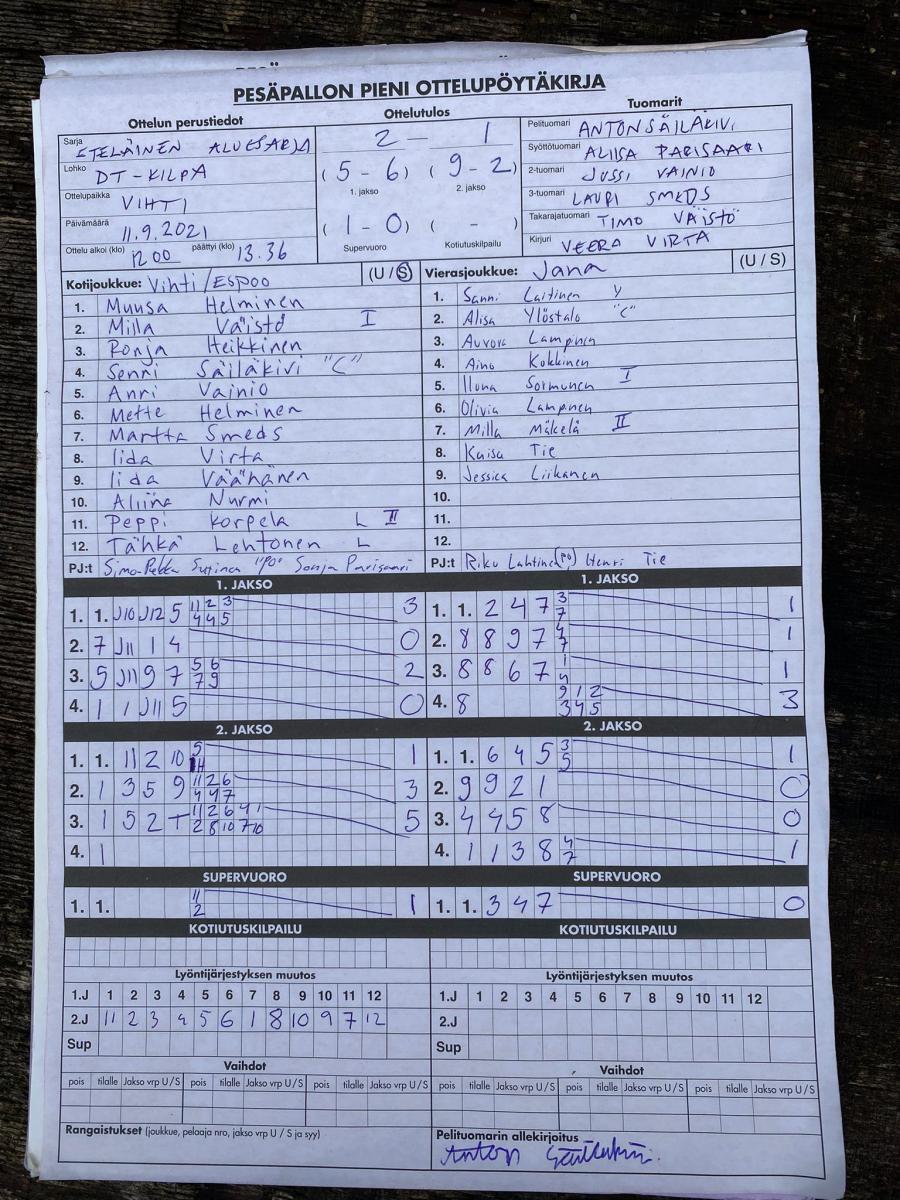 PESÄPALLON PIENI OTTELUPÖYTÄKIRJA
Ottelun perustiedot
Sarja ETELÄINEN ALUESARJA
Lohko DT-KILPA
Ottelupaikka VIHTI
Päivämäärä 11.9.2021
Ottelu alkoi (klo) 12 00 päättyi (klo) 13.36
Ottelutulos
2 - 1
(5 - 6) (9 - 2)
1. jakso 2. jakso
(1 - 0) ( - )
Supervuoro Kotiutuskilpailu
Tuomarit
Pelituomari ANTON SÄILÄKIVI
Syöttötuomari ALIISA PARISAARI
2-tuomari JUSSI VAINIO
3-tuomari LAURI SMEDS
Takarajatuomari TIMO VÄISTÖ
Kirjuri VEERA VIRTA
Kotijoukkue: Vihti/Espoo (U / S)
1. Muusa Helminen
2. Milla Väistö I
3. Ronja Heikkinen
4. Senni Säiläkivi "C"
5. Anni Vainio
6. Mette Helminen
7. Martta Smeds
8. Iida Virta
9. Iida Väähänen
10. Aliina Nurmi
11. Peppi Korpela L II
12. Tähkä Lehtonen L
PJ:t Simo-Pekka "PO" Sonja Parisaari
Vierasjoukkue: Jana (U / S)
1. Sanni Laitinen Y
2. Alisa Ylöstalo "C"
3. Aurora Lampinen
4. Aino Kokkinen
5. Iluna Sormunen I
6. Olivia Lampinen
7. Milla Mäkelä II
8. Kaisa Tie
9. Jessica Liikanen
10.
11.
12.
PJ:t Riku Lahtinen (PO) Henri Tie
1. JAKSO
1. 1. J10 J12 5 11 2 3 4 4 5 3
2. 7 J11 1 4 0
3. 5 J11 9 7 5 6 7 9 2
4. 1 1 J11 5 0
1. JAKSO
1. 1. 2 4 7 3 7 1
2. 8 8 9 7 4 7 1
3. 8 8 6 7 1 4 1
4. 8 9 1 2 3 4 5 3
2. JAKSO
1. 1. 11 2 10 5 1
2. 1 3 5 9 11 2 6 4 4 7 3
3. 1 5 2 T 11 2 6 4 1 2 8 10 7 10 5
4. 1
2. JAKSO
1. 1. 6 4 5 3 5 1
2. 9 9 2 1 0
3. 4 4 5 8 0
4. 1 1 3 8 4 7 1
SUPERVUORO
1. 1. 11 2 1
SUPERVUORO
1. 1. 3 4 7 0
KOTIUTUSKILPAILU
KOTIUTUSKILPAILU
Lyöntijärjestyksen muutos
1.J 1 2 3 4 5 6 7 8 9 10 11 12
2.J 11 2 3 4 5 6 1 8 10 9 7 12
Sup
Lyöntijärjestyksen muutos
1.J 1 2 3 4 5 6 7 8 9 10 11 12
2.J
Sup
Vaihdot
pois tilalle Jakso vrp U / S pois tilalle Jakso vrp U / S pois tilalle Jakso vrp U / S
Vaihdot
pois tilalle Jakso vrp U / S pois tilalle Jakso vrp U / S pois tilalle Jakso vrp U / S
Rangaistukset (joukkue, pelaaja nro, jakso vrp U / S ja syy)
Pelituomarin allekirjoitus
Anton Säiläkivi